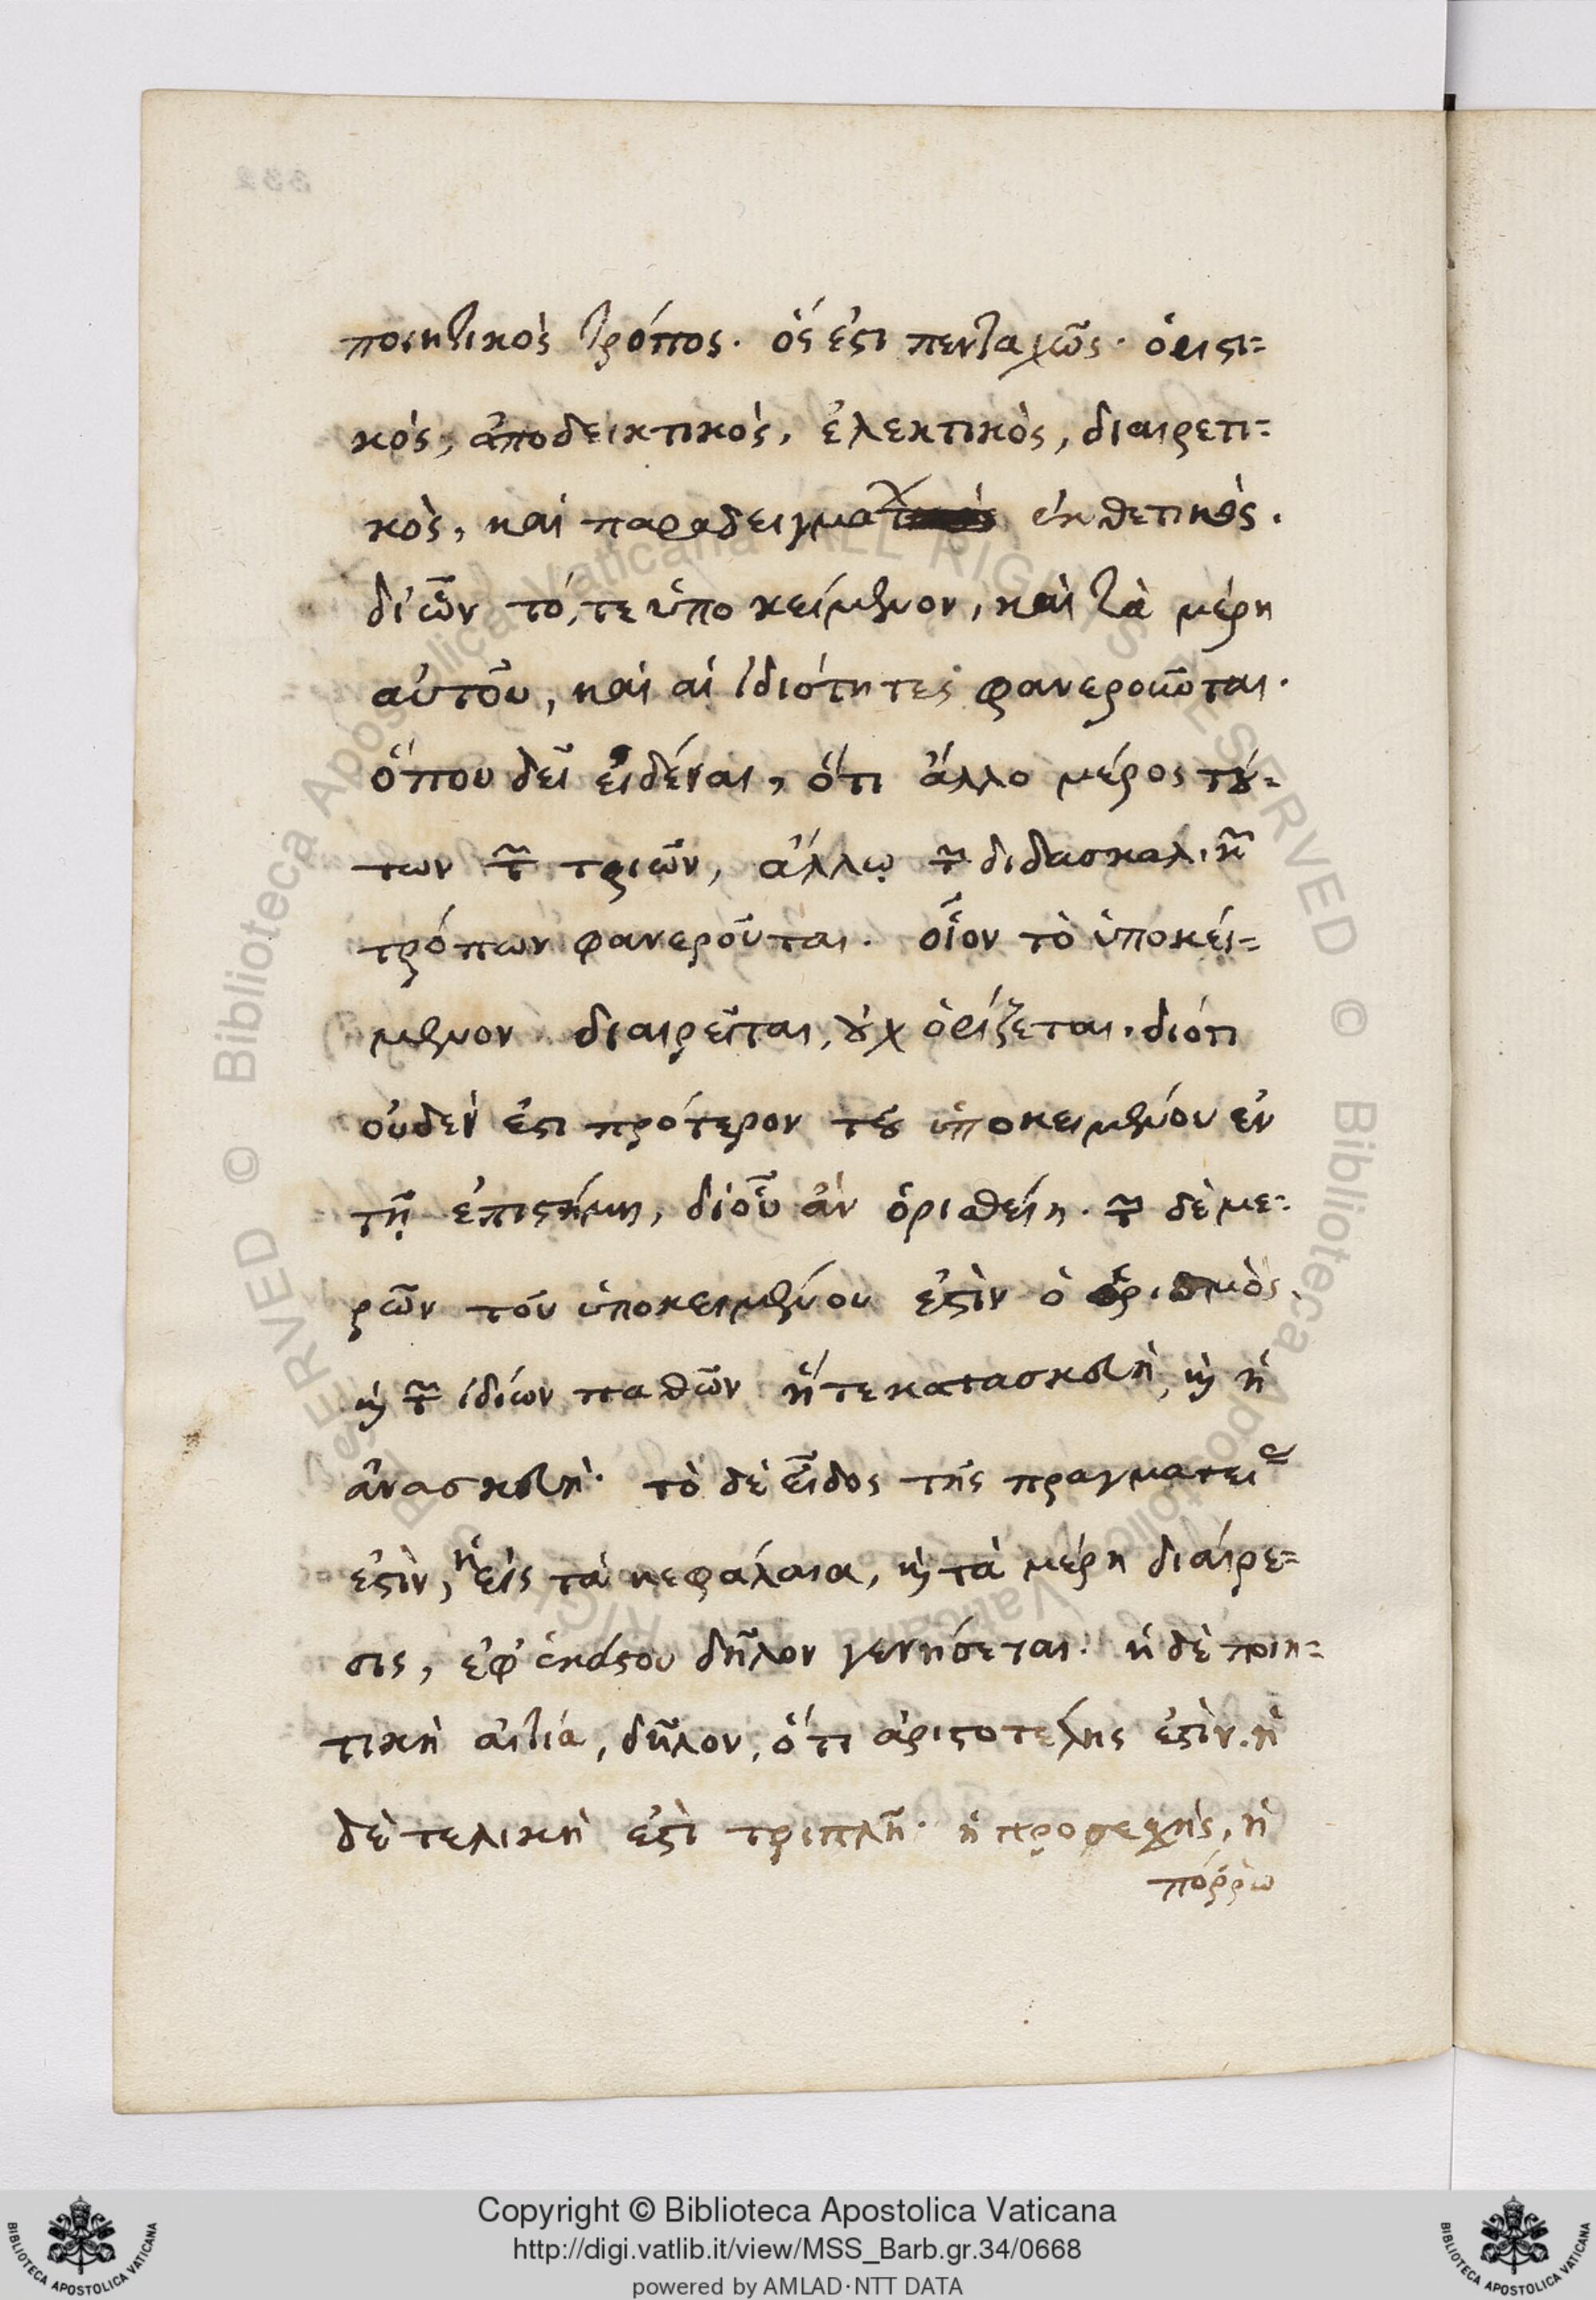 ποιητικὸς τρόπος. ὅς ἐστι πενταχῶς. ὁριστι=
κὸς, ἀποδεικτικὸς, ἐλεκτικὸς, διαιρετι=
κὸς, καὶ παραδειγμα ἐκθετικός.
δι' ὧν τό, τε ὑποκείμενον, καὶ τὰ μέρη
αὐτοῦ, καὶ αἱ ἰδιότητες φανεροῦται.
ὅπου δεῖ εἰδέναι, ὅτι ἄλλο μέρος τού=
των τῶν τριῶν, ἄλλῳ τῶν διδασκαλικῶν
τρόπων φανεροῦται. οἷον τὸ ὑποκεί=
μενον διαιρεῖται, οὐχ ὁρίζεται. διότι
οὐδέν ἐστι πρότερον τοῦ ὑποκειμένου ἐν
τῇ ἐπιστήμῃ, δι' οὗ ἂν ὁρισθείη. τῶν δὲ με=
ρῶν τοῦ ὑποκειμένου ἐστὶν ὁ ὁρισμὸς.
καὶ τῶν ἰδίων παθῶν ἥ τε κατασκευὴ, καὶ ἡ
ἀνασκευή. τὸ δὲ εἶδος τῆς πραγματείας
ἐστὶν, ἡ εἰς τὰ κεφάλαια, καὶ τὰ μέρη διαίρε=
σις, ἐφ' ἑκάστου δῆλον γενήσεται. ἡ δὲ ποιη=
τικὴ αἰτία, δῆλον, ὅτι ἀριστοτέλης ἐστίν. ἡ
δὲ τελικὴ ἐστὶ τριπλῆ. ἡ προσεχὴς, ἡ
πόῤῥω
Copyright © Biblioteca Apostolica Vaticana
http://digi.vatlib.it/view/MSS_Barb.gr.34/0668
powered by AMLAD·NTT DATA